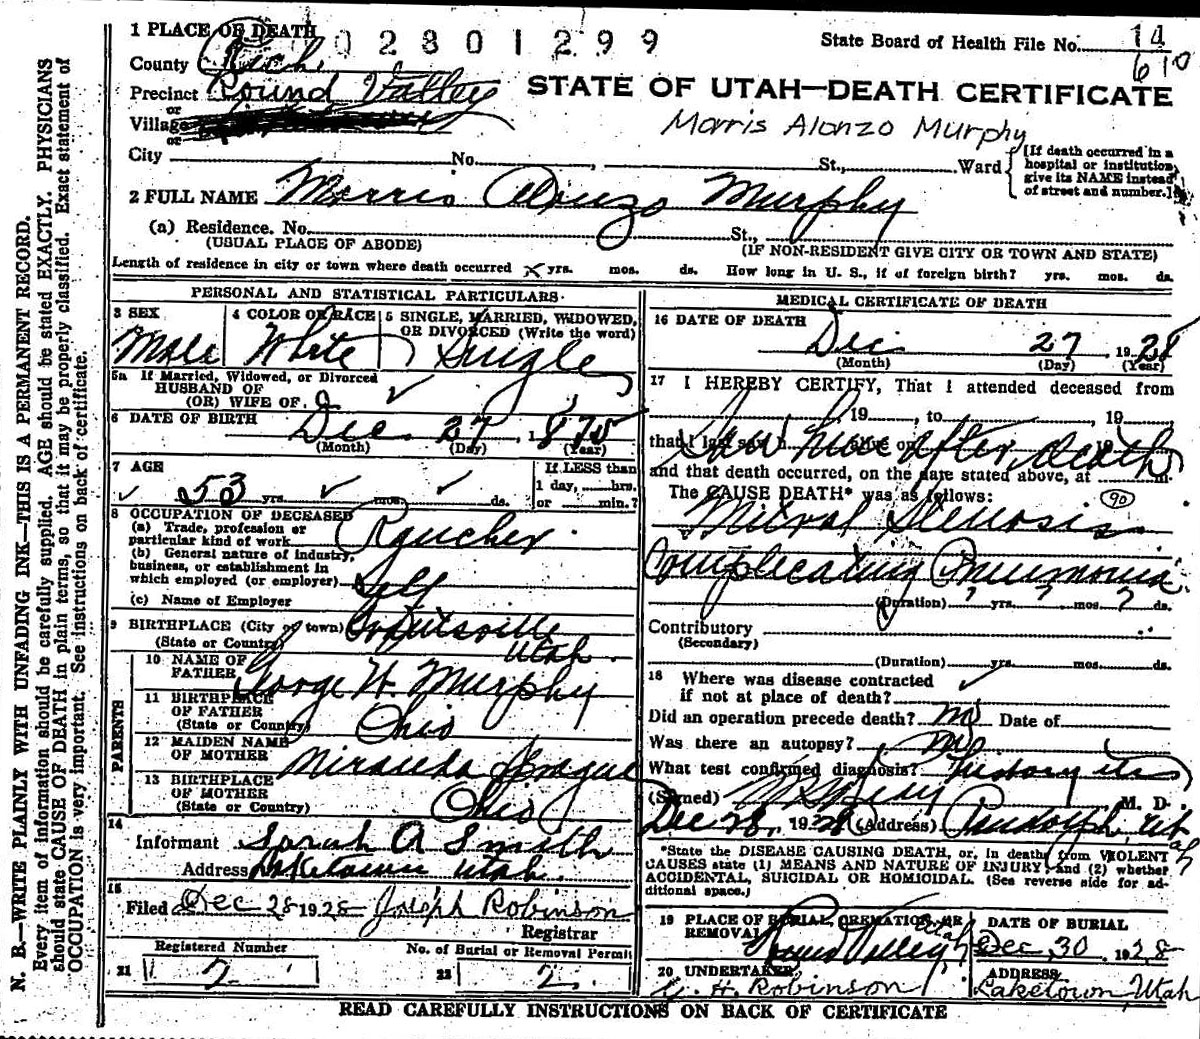 1 PLACE OF DEATH
0 2 8 0 1 2 9 9
State Board of Health File No. 14
610
County Rich
Precinct Round Valley
STATE OF UTAH—DEATH CERTIFICATE
or
Village
or
Morris Alonzo Murphy
City No. , St., Ward
(If death occurred in a hospital or institution give its NAME instead of street and number.)
2 FULL NAME Morris Alonzo Murphy
(a) Residence. No. St.,
(USUAL PLACE OF ABODE) (IF NON-RESIDENT GIVE CITY OR TOWN AND STATE)
Length of residence in city or town where death occurred x yrs. mos. ds. How long in U. S., if of foreign birth? yrs. mos. ds.
PERSONAL AND STATISTICAL PARTICULARS
3 SEX 4 COLOR OR RACE 5 SINGLE, MARRIED, WIDOWED, OR DIVORCED (Write the word)
Male White Single
5a If Married, Widowed, or Divorced
HUSBAND OF
(OR) WIFE OF ✓
6 DATE OF BIRTH Dec. 27, 1875
(Month) (Day) (Year)
7 AGE If LESS than
✓ 53 yrs. ✓ mos. ✓ ds. 1 day, hrs.
or min.?
8 OCCUPATION OF DECEASED
(a) Trade, profession or
particular kind of work Rancher
(b) General nature of industry,
business, or establishment in
which employed (or employer) Self
(c) Name of Employer
9 BIRTHPLACE (City or town)
(State or Country) Utah
PARENTS
10 NAME OF
FATHER George H. Murphy
11 BIRTHPLACE
OF FATHER
(State or Country) Ohio
12 MAIDEN NAME
OF MOTHER Miranda Sprague
13 BIRTHPLACE
OF MOTHER
(State or Country) Ohio
14
Informant Sarah A Smith
Address Laketown Utah.
15
Filed Dec 28 1928 Joseph Robinson
Registrar
Registered Number No. of Burial or Removal Permit
21 2 22 2
MEDICAL CERTIFICATE OF DEATH
16 DATE OF DEATH
Dec 27, 1928
(Month) (Day) (Year)
17 I HEREBY CERTIFY, That I attended deceased from
19 , to , 19
that I last saw h alive on , 19
Saw him after death
and that death occurred, on the date stated above, at m.
The CAUSE DEATH* was as follows: 90
Mitral Stenosis
Complicating Pneumonia
(Duration) ? yrs. ? mos. ? ds.
Contributory
(Secondary)
(Duration) yrs. mos. ds.
18 Where was disease contracted
if not at place of death? ✓
Did an operation precede death? no Date of
Was there an autopsy? no
What test confirmed diagnosis? History etc
(Signed) M. D.
Dec 28, 1928 (Address) Randolph, Utah
*State the DISEASE CAUSING DEATH, or, in deaths from VIOLENT
CAUSES state (1) MEANS AND NATURE OF INJURY; and (2) whether
ACCIDENTAL, SUICIDAL OR HOMICIDAL. (See reverse side for ad-
ditional space.)
19 PLACE OF BURIAL, CREMATION, OR
REMOVAL Round Valley Utah
DATE OF BURIAL
Dec 30, 1928
20 UNDERTAKER
H. Robinson
ADDRESS
Laketown, Utah
READ CAREFULLY INSTRUCTIONS ON BACK OF CERTIFICATE
N. B.—WRITE PLAINLY WITH UNFADING INK—THIS IS A PERMANENT RECORD.
Every item of information should be carefully supplied. AGE should be stated EXACTLY. PHYSICIANS
should state CAUSE OF DEATH in plain terms, so that it may be properly classified. Exact statement of
OCCUPATION is very important. See instructions on back of certificate.